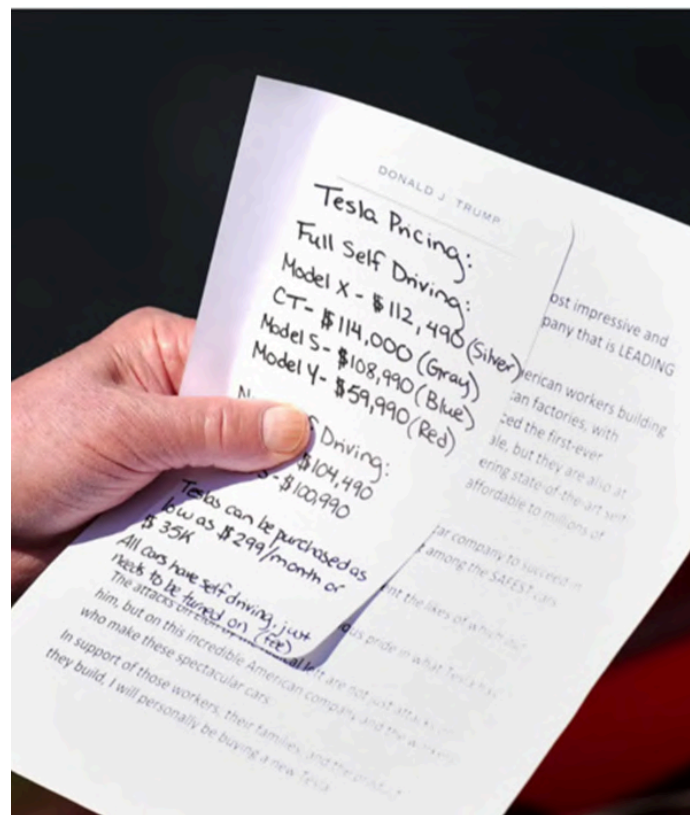 DONALD J. TRUMP
Tesla Pricing:
Full Self Driving:
Model X - $112,490 (Silver)
CT - $114,000 (Gray)
Model S - $108,990 (Blue)
Model Y - $59,990 (Red)
Driving:
$104,490
S - $100,990
Teslas can be purchased as
low as $299/month or
$35K
All cars have self driving, just
needs to be turned on (fee)
ost impressive and
pany that is LEADING
erican workers building
can factories, with
ced the first-ever
ale, but they are also at
ering state-of-the-art self-
affordable to millions of
car company to succeed in
among the SAFEST cars
ent the likes of which
ous pride in what Tesla has
The attacks on
left are not just attacks
him, but on this incredible American company and the
who make these spectacular cars.
In support of those workers, their families, and the product
they build, I will personally be buying a new Tesla